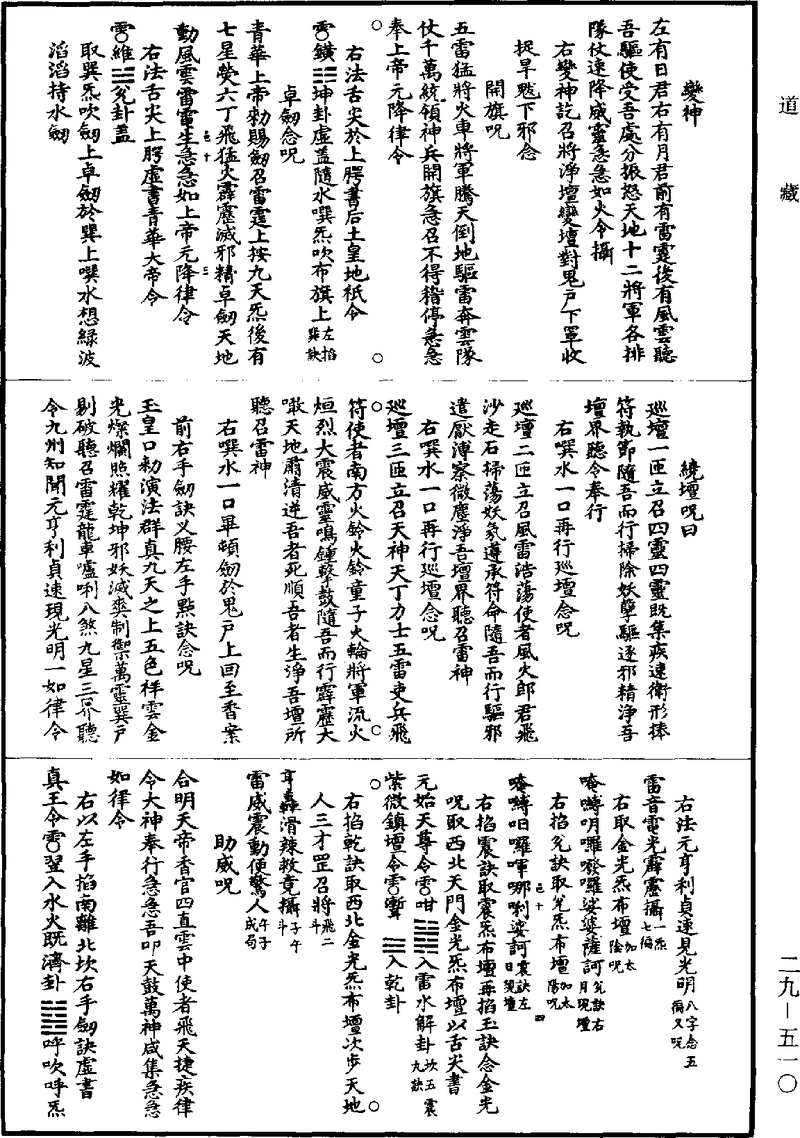 道藏
二九—五一〇
變神
左有日君右有月君前有雷霆後有風雲聽
吾驅使受吾處分振怒天地十二將軍各排
隊仗速降威靈急急如火令攝
右變神訖召將淨壇變壇對鬼戶下罩收
捉旱魃下邪念
開旗呪
五雷猛將火車將軍騰天倒地驅雷奔雲隊
仗千萬統領神兵開旗急召不得稽停急急
奉上帝元降律令
右法舌尖於上腭書后土皇地祇令
䨻鐄☷坤卦虛蓋隨水噀炁吹布旗上左掐
巽訣
卓劒念呪
青華上帝勑賜劒召雷霆上按九天炁後有
七星熒六丁飛猛火霹靂滅邪精卓劒天地
動風雲雷電生急急如上帝元降律令
右法舌尖上腭虛書青華大帝令
維☱兊卦蓋
取巽炁吹劒上卓劒於巽上噀水想綠波
滔滔持水劒
繞壇呪曰
巡壇一匝立召四靈四靈既集疾速衛形捧
符執節隨吾而行掃除妖孽驅逐邪精淨吾
壇界聽令奉行
右噀水一口再行巡壇念呪
巡壇二匝立召風雷浩蕩使者風火郎君飛
沙走石掃蕩妖氛遵承符命隨吾而行驅邪
遣厭溥察微塵淨吾壇界聽召雷神
右噀水一口再行巡壇念呪
巡壇三匝立召天神天丁力士五雷吏兵飛
符使者南方火鈴火鈴童子火輪將軍流火
烜烈大震威靈鳴鍾擊鼓隨吾而行霹靂大
噉天地肅清逆吾者死順吾者生淨吾壇所
聽召雷神
右噀水一口畢頓劒於鬼戶上回至香案
前右手劒訣乂腰左手點訣念呪
玉皇口勑演法群真九天之上五色祥雲金
光燦爛照耀乾坤邪妖滅爽制禦萬靈巽戶
剔破聽召雷霆龍車嚧唎八煞九星三界聽
令九州知聞元亨利貞速現光明一如律令
右法元亨利貞速見光明八字念五
徧又呪
雷音電光霹靂攝一炁
七徧
右取金光炁布壇加太
陰呪
唵嚩吅囉癹囉娑婆薩訶兊訣右
月現壇
右掐兊訣取兊炁布壇加太
陽呪
唵嚩呾囉㖇哪唎婆訶震訣左
日現壇
右掐震訣取震炁布壇再掐玉訣念金光
呪取西北天門金光炁布壇以舌尖書
元始天尊令入雷水解卦坎五震
九訣
紫微鎮壇令入乾卦
右掐乾訣取西北金光炁布壇次步天地
人三才罡召將飛二
斗
亨轟滑辣敕竟攝子午
斗
雷威震動便驚人午子
成局
助威呪
合明天帝香官四直雲中使者飛天捷疾律
令大神奉行急急吾叩天鼓萬神咸集急急
如律令
右以左手掐南離北坎右手劒訣虛書
真王令入水火既濟卦呼吹呼炁